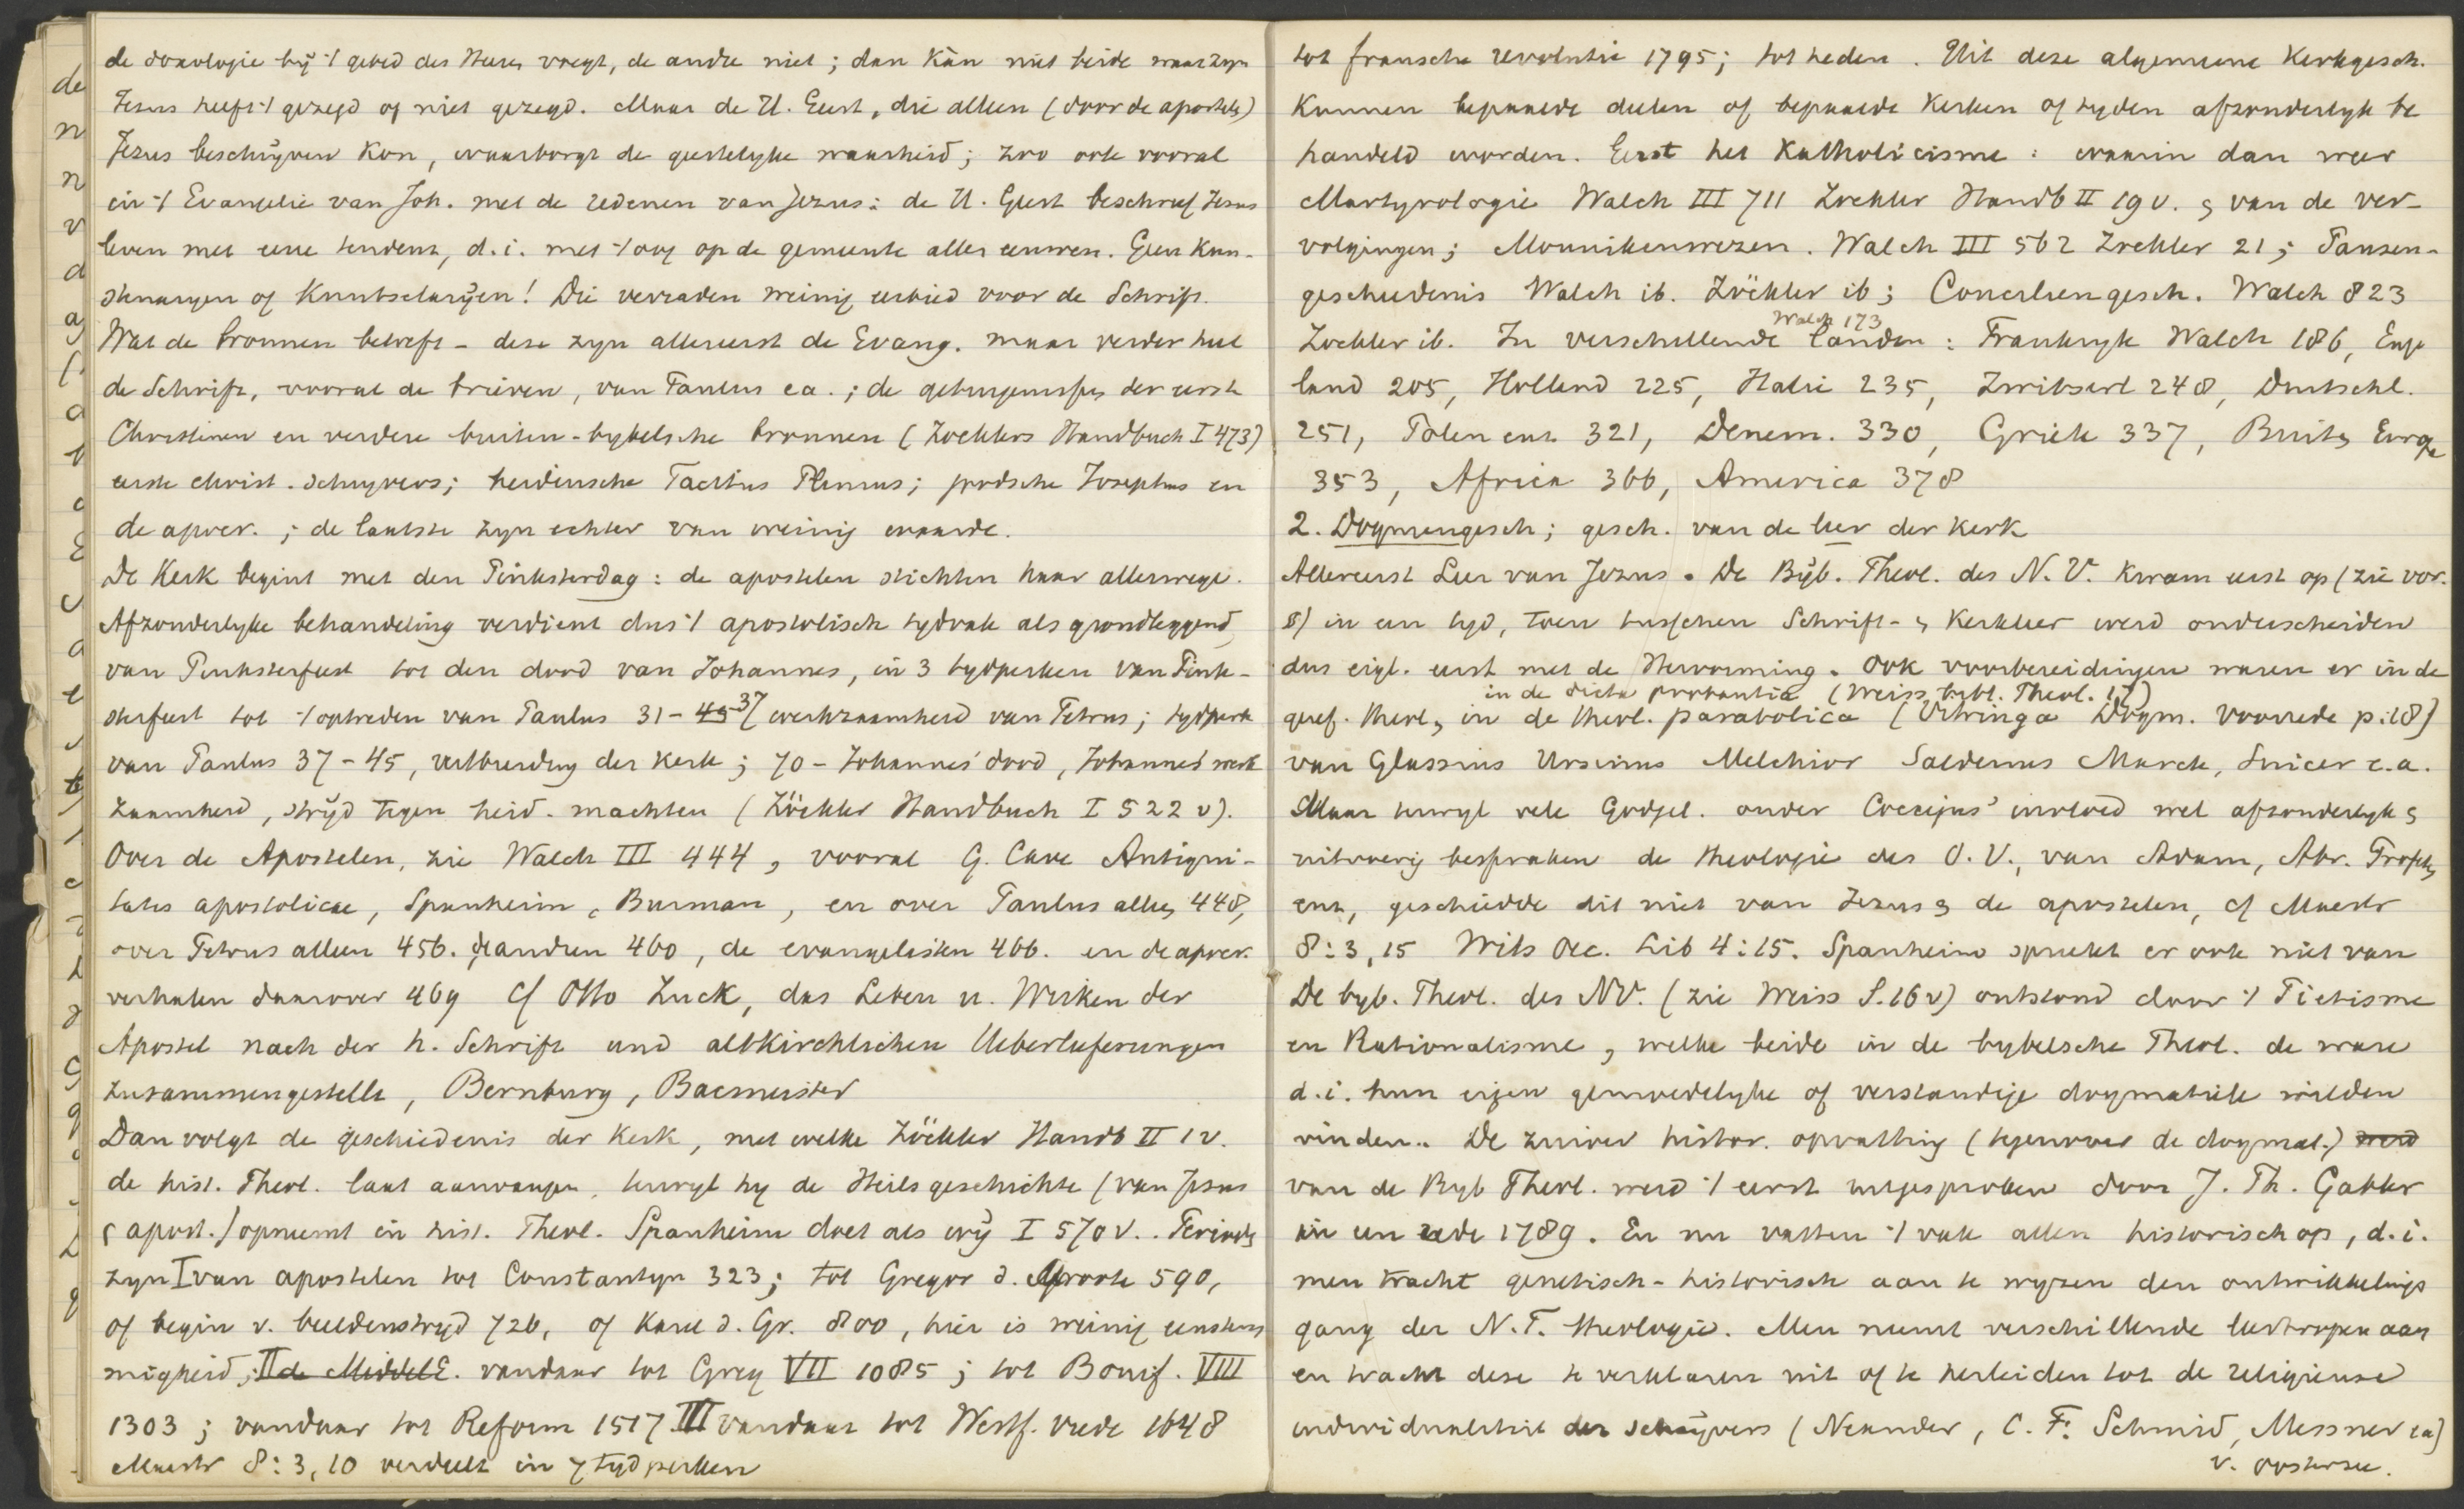 de doxologie bij 't gebed des Heeren voegt, de andre niet; dan kàn niet beide waar zyn
Jezus heeft 't gezegd of niet gezegd. Maar de H. Geest, die alleen (door de apostels)
Jezus beschrijven kon, waarborgt de geestelyke waarheid; zoo ook vooral
in 't Evangelie van Joh. met de redenen van Jezus: de H. Geest beschreef Jezus
leven met eene tendenz, d.i. met 't oog op de gemeente aller eeuwen. Geen kan-
of Knutselaryen! Die verraden weinig eerbied voor de Schrift.
Wat de bronnen betreft - deze zyn allereerst de Evang. maar verder heel
de Schrift, vooral de brieven, van Paulus ea.; de getuigenissen der eerste
Christenen en verdere buiten-bybelsche bronnen (Zoeklers Handbuch I 473)
eerste christ. schryvers; heidensche Tacitus Plinius; joodsche Josephus en
de apocr.; de laatste zyn echter van weinig waarde.
De Kerk begint met den Pinksterdag: de apostelen stichten haar allerwege.
Afzonderlyke behandeling verdient dus 't apostolisch tydvak als grondleggend,
van Pinksterfeest tot den dood van Johannes, in 3 tydperken van Pink-
sterfeest tot 't optreden van Paulus 31-45 37 werkzaamheid van Petrus; tydperk
van Paulus 37-45, uitbreiding der kerk; 70 - Johannes' dood, Johannes' werk
zaamheid, stryd tegen heid. machten (Zöckler Handbuch I 522 v).
Over de Apostelen, zie Walch III 444, vooral G. Cave Antiqui-
tates apostolicae, Spanheim, Burman, en over Paulus alles 448,
over Petrus alleen 456. de andren 460, de evangelisten 466. en de apocr.
verhalen daarover 469 cf Otto Zuck, das Leben u. Wirken der
Apostel nach der h. Schrift und altkirchlichen Ueberlieferungen
zusammengestellt, Bernburg, Bacmeister
Dan volgt de geschiedenis der Kerk, met welke Zöckler Handb II 1 v.
de hist. Theol. laat aanvangen, terwyl hy de Heilsgeschichte (van Jezus
& apost.) opneemt in hist. Theol. Spanheim doet als wij I 570 v. . Perioden
zyn I van apostelen tot Constantyn 323; tot Gregor d. Groote 590,
of begin v. beeldenstryd 726, of Karel d. Gr. 800, hier is weinig eenstem
migheid; II de MiddelE. vandaar tot Greg VII 1085; tot Bonif. VIII
1303; vandaar tot Reform 1517 III vandaar tot Westf. vrede 1648
Maestr 8:3,10 verdeelt in 7 tydperken
tot fransche revolutie 1795; tot heden. Uit deze algemeene Kerkgesch.
kunnen bepaalde deelen of bepaalde Kerken of tyden afzonderlyk be
handeld worden. Eerst het Katholicisme: waarin dan weer
Martyrologie Walch III 711 Zockler Handb II 19 v. & van de ver-
volgingen; Monnikenwezen. Walch III 562 Zockler 21; Pausen-
geschiedenis Walch ib. Zöckler ib; Conciliengesch. Walch 823
Zockler ib. In verschillende landen: Walch 173 Frankryk Walch 186, Enge
land 205, Holland 225, Italie 235, Zwitserl 248, Duitschl.
251, Polen enz. 321, Denem. 330, Griek 337, Buiten Europa
353, Africa 366, America 378
2. Dogmengesch; gesch. van de leer der Kerk
Allereerst Leer van Jezus. De Byb. Theol. des N.V. kwam eerst op (zie voor.
8) in een tyd, toen tusschen Schrift- & Kerkleer werd onderscheiden
dus eigl. eerst met de Hervorming. Ook voorbereidingen waren er in de
in de dicta probantia (Weiss bybl. Theol. 17)
geref. theol, in de theol. parabolica (Vitringa Dogm. Voorrede p. 18)
van Glassius Ursinus Melchior Saldenus Marck, Suicer e.a.
Maar terwyl vele Godgel. onder Coccejus' invloed wel afzonderlyk &
uitvoerig bespraken de theologie des O.V., van Adam, Abr. Profeten
enz, geschiedde dit niet van Jezus & de apostelen, cf Maestr
8:3,15 Wits Oec. Lib 4:15. Spanheim spreekt er ook niet van
De byb. Theol. des NV. (zie Weiss S. 16 v) ontstond door 't Pietisme
en Rationalisme, welke beide in de bybelsche Theol. de ware
d.i. hun eigen gemoedelyke of verstandige dogmatiek wilden
vinden. De zuiver histor. opvatting (tegenover de dogmat.) werd
van de Byb Theol. werd 't eerst uitgesproken door J. Th. Gabler
in een rede 1789. En nu vatten 't vak allen historisch op, d.i.
men tracht genetisch-historisch aan te wyzen den ontwikkelings
gang der N.T. theologie. Men neemt verschillende leertropen aan
en tracht deze te verklaren uit of te herleiden tot de religieuse
individualiteit der schrijvers (Neander, C.F. Schmid, Messner ea)
v. Oosterzee.